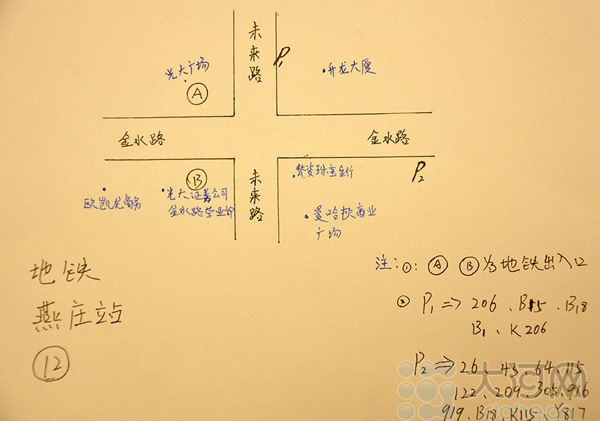 未来路
P1
光大广场
A
升龙大厦
金水路
金水路
B
未来路
P2
梵资珠宝金行
欧凯龙商务
光大证券公司
金水路营业部
曼哈顿商业
广场
地铁
燕庄站
12
注:①:Ⓐ Ⓑ为地铁出入口
② P1 => 206、B15、B18
B1、K206
P2 => 26、43、64、115
122、209、305、916
919、B18、K115、Y817
大河网